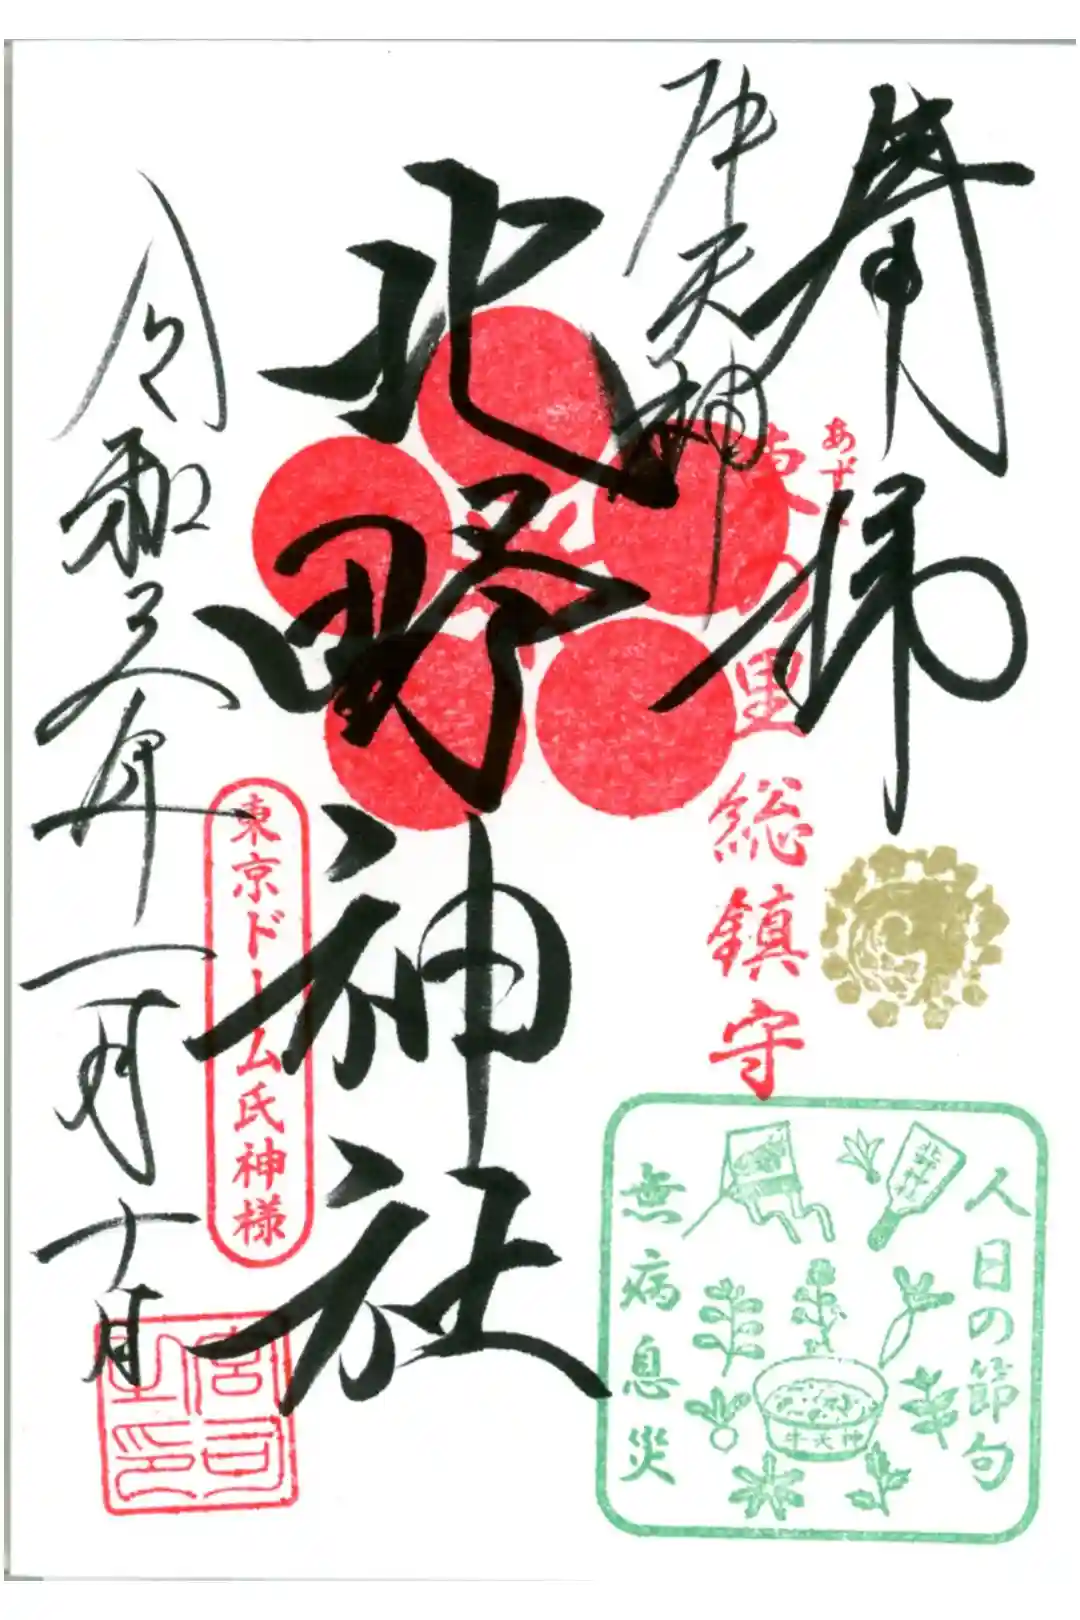 奉拝
牛天神
あず
東の里総鎮守
北野神社
東京ドーム氏神様
令和 年一月十日
宮司之印
人日の節句
無病息災
北野神社
牛天神